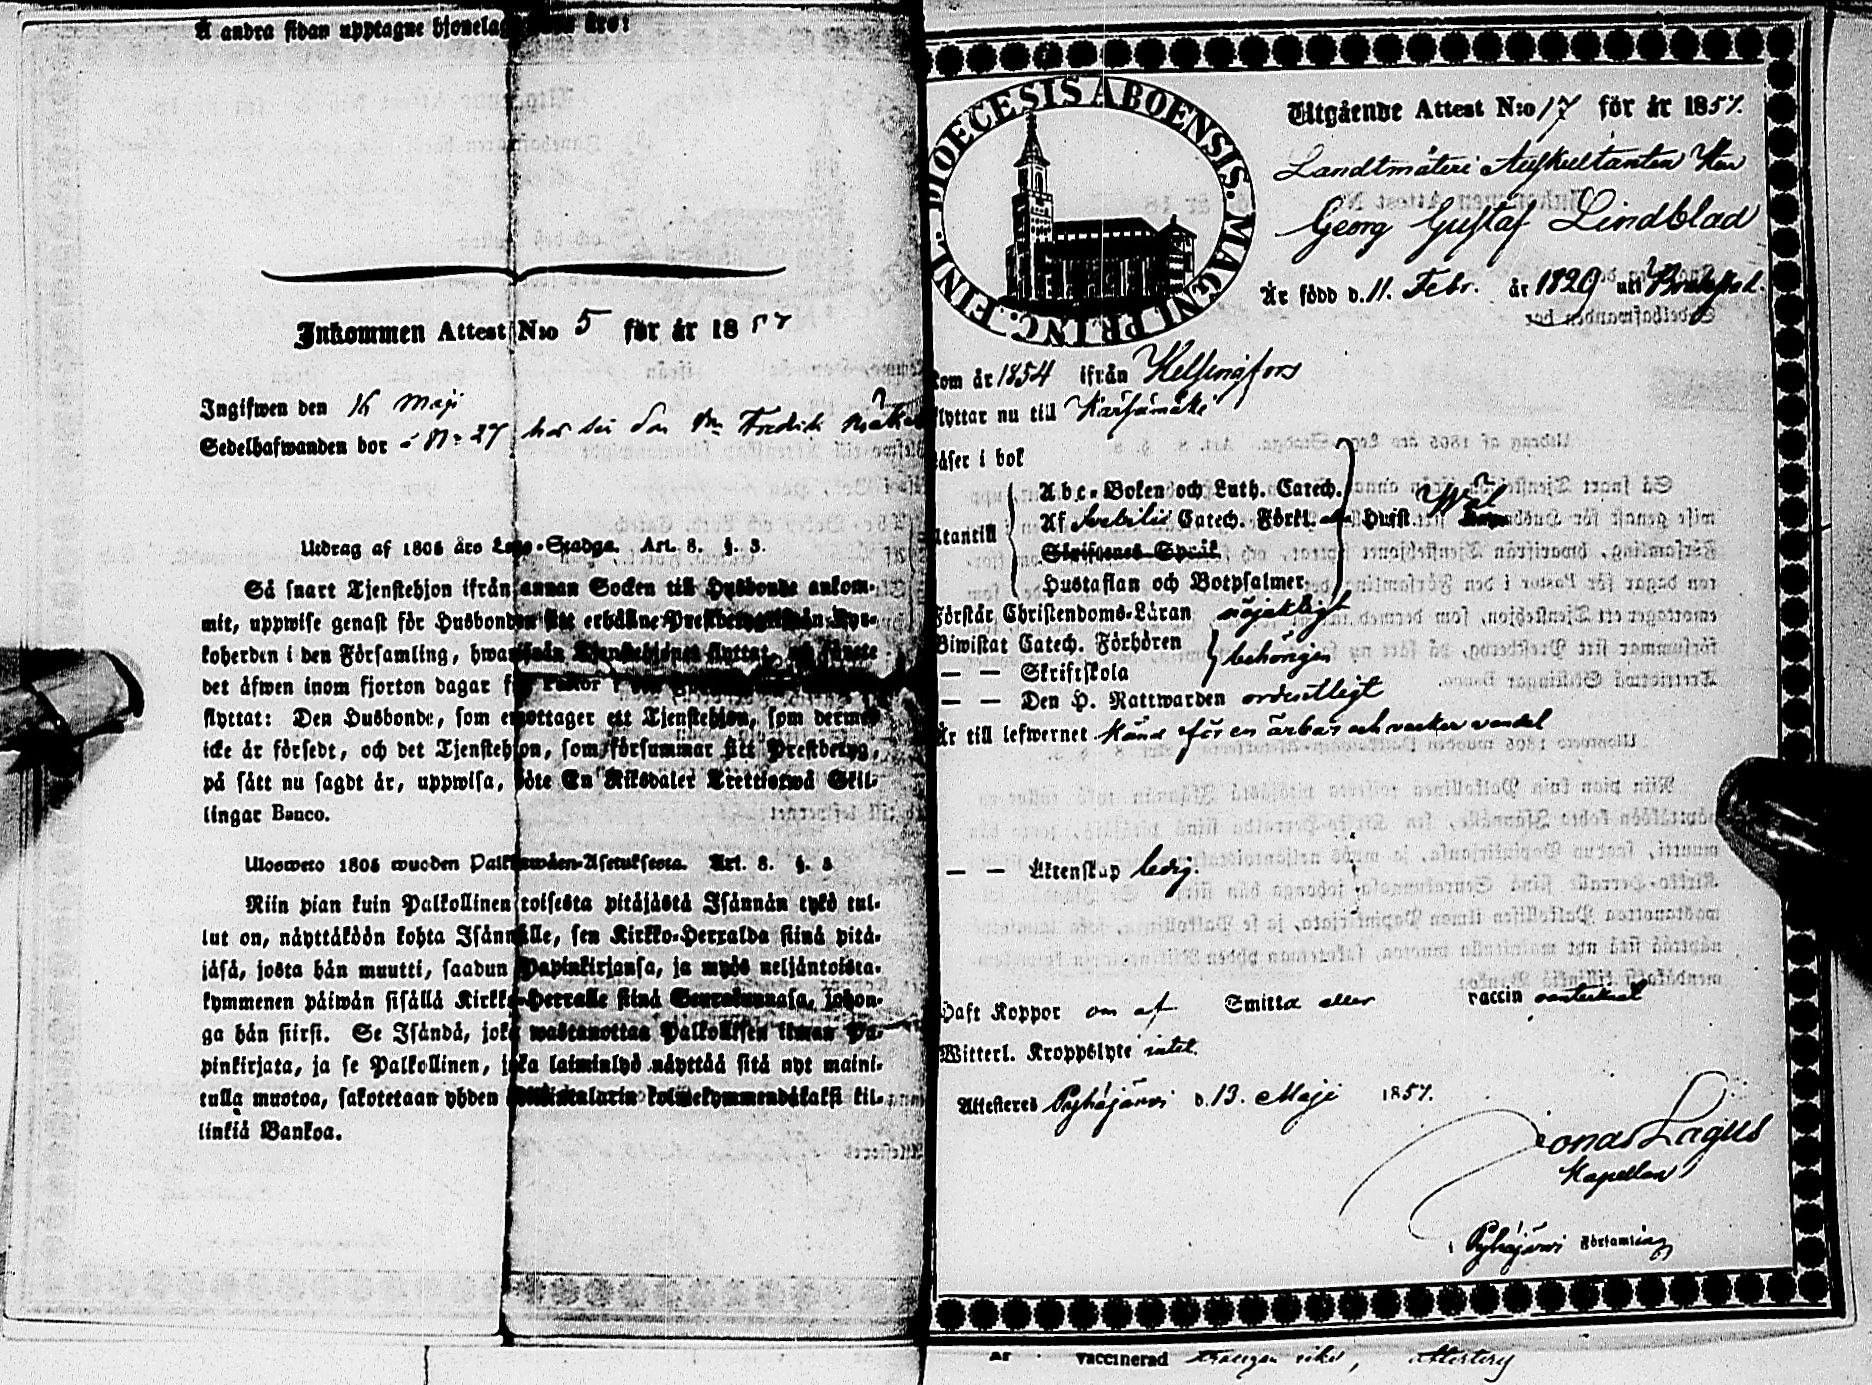 Å andra sidan upptagne hjonelag äro:
Inkommen Attest N:o 5 för år 1857
Ingifwen den 16 Maji
Sedelhafwanden bor å N:o 27 hos sin Fredrik
Utdrag af 1805 års Lego-Stadga. Art. 8. §. 3.
Så snart Tjenstehjon ifrån annan Socken till Husbonde ankom-
mit, uppwise genast för Husbonden sitt erhållne Prestbetyg ifrån Kyr-
koherden i den Församling, hwarifrån Tjenstehjonet flyttat, och
det äfwen inom fjorton dagar för Pastor i den
flyttat: Den Husbonde, som emottager ett Tjenstehjon, som dermed
icke är försedt, och det Tjenstehjon, som försummar sitt Prestbetyg,
på sätt nu sagdt är, uppwisa, böte En Riksdaler Trettiotwå Skil-
lingar Banco.
Ulosweto 1805 wuoden Palkkawäen-Asetuksesta. Art. 8. §. 3
Niin pian kuin Palkollinen toisesta pitäjästä Isännän tykö tul-
lut on, näyttäköön kohta Isännälle, sen Kirkko-Herralda siinä pitä-
jäsä, josta hän muutti, saadun Papinkirjansa, ja myös neljäntoista-
kymmenen päiwän sisällä Kirkko-Herralle siinä Seurakunnasa, johon-
ga hän siirsi. Se Isändä, joka wastanottaa Palkollisen ilman Pa-
pinkirjata, ja se Palkollinen, joka laiminlyö näyttää sitä nyt maini-
tulla muotoa, sakotetaan yhden Riksitalarin kolmekymmendäkaksi kil-
linkiä Bankoa.
DIOECESIS ABOENSIS. MAGNI PRINC. FINL.
Utgående Attest N:o 17 för år 1857.
Landtmäteri Auskultanten Herr
Georg Gustaf Lindblad
Är född d. 11. Febr. år 1829 uti Brahestad.
kom år 1854 ifrån Helsingfors
flyttar nu till Kärsämäki
läser i bok
Abc-Boken och Luth. Catech.
utantill Af Svebilii Catech. Förkl. Hust. Wäl
Skriftenes Språk
Hustaflan och Botpsalmer
Förstår Christendoms-Läran nöjaktligt
Biwistat Catech. Förhören
— — Skriftskola behörigen
— — Den H. Nattwarden ordentligt
Är till lefwernet känd för en ärbar och vacker vandel
— — Äktenskap ledig.
Haft Koppor om af Smitta eller vaccin oantecknat
Witterl. Kroppslyte intet.
Attesteres Pyhäjärvi d. 13. Maji 1857.
Jonas Lagus
Kapellan
i Pyhäjärvi Församling
är vaccinerad